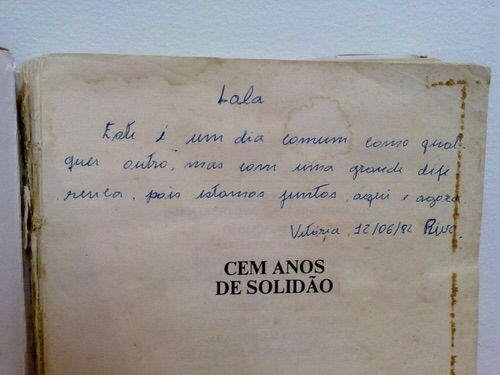 Lala
Este é um dia comum como qual
quer outro, mas com uma grande dife
rença, pois estamos juntos, aqui e agora.
Vitória, 12/06/82
CEM ANOS
DE SOLIDÃO